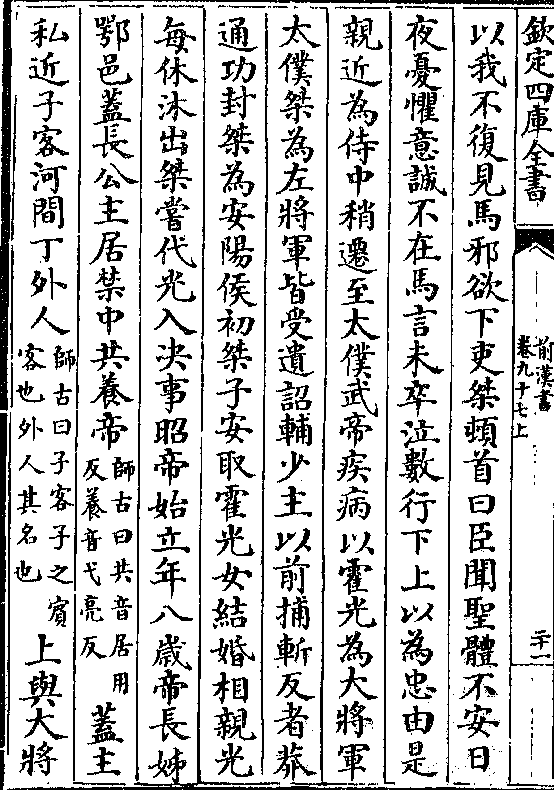 欽定四庫全書
前漢書
卷九十七上
二十一
以我不復見馬邪欲下吏桀頓首曰臣聞聖體不安日
夜憂懼意誠不在馬言未卒泣數行下上以為忠由是
親近為侍中稍遷至太僕武帝疾病以霍光為大將軍
太僕桀為左將軍皆受遺詔輔少主以前捕斬反者莽
通功封桀為安陽侯初桀子安取霍光女結婚相親光
每休沐出桀嘗代光入決事昭帝始立年八歲帝長姊
鄂邑蓋長公主居禁中共養帝師古曰共音居用反養音弋亮反蓋主
私近子客河間丁外人師古曰子客子之賓客也外人其名也上與大將